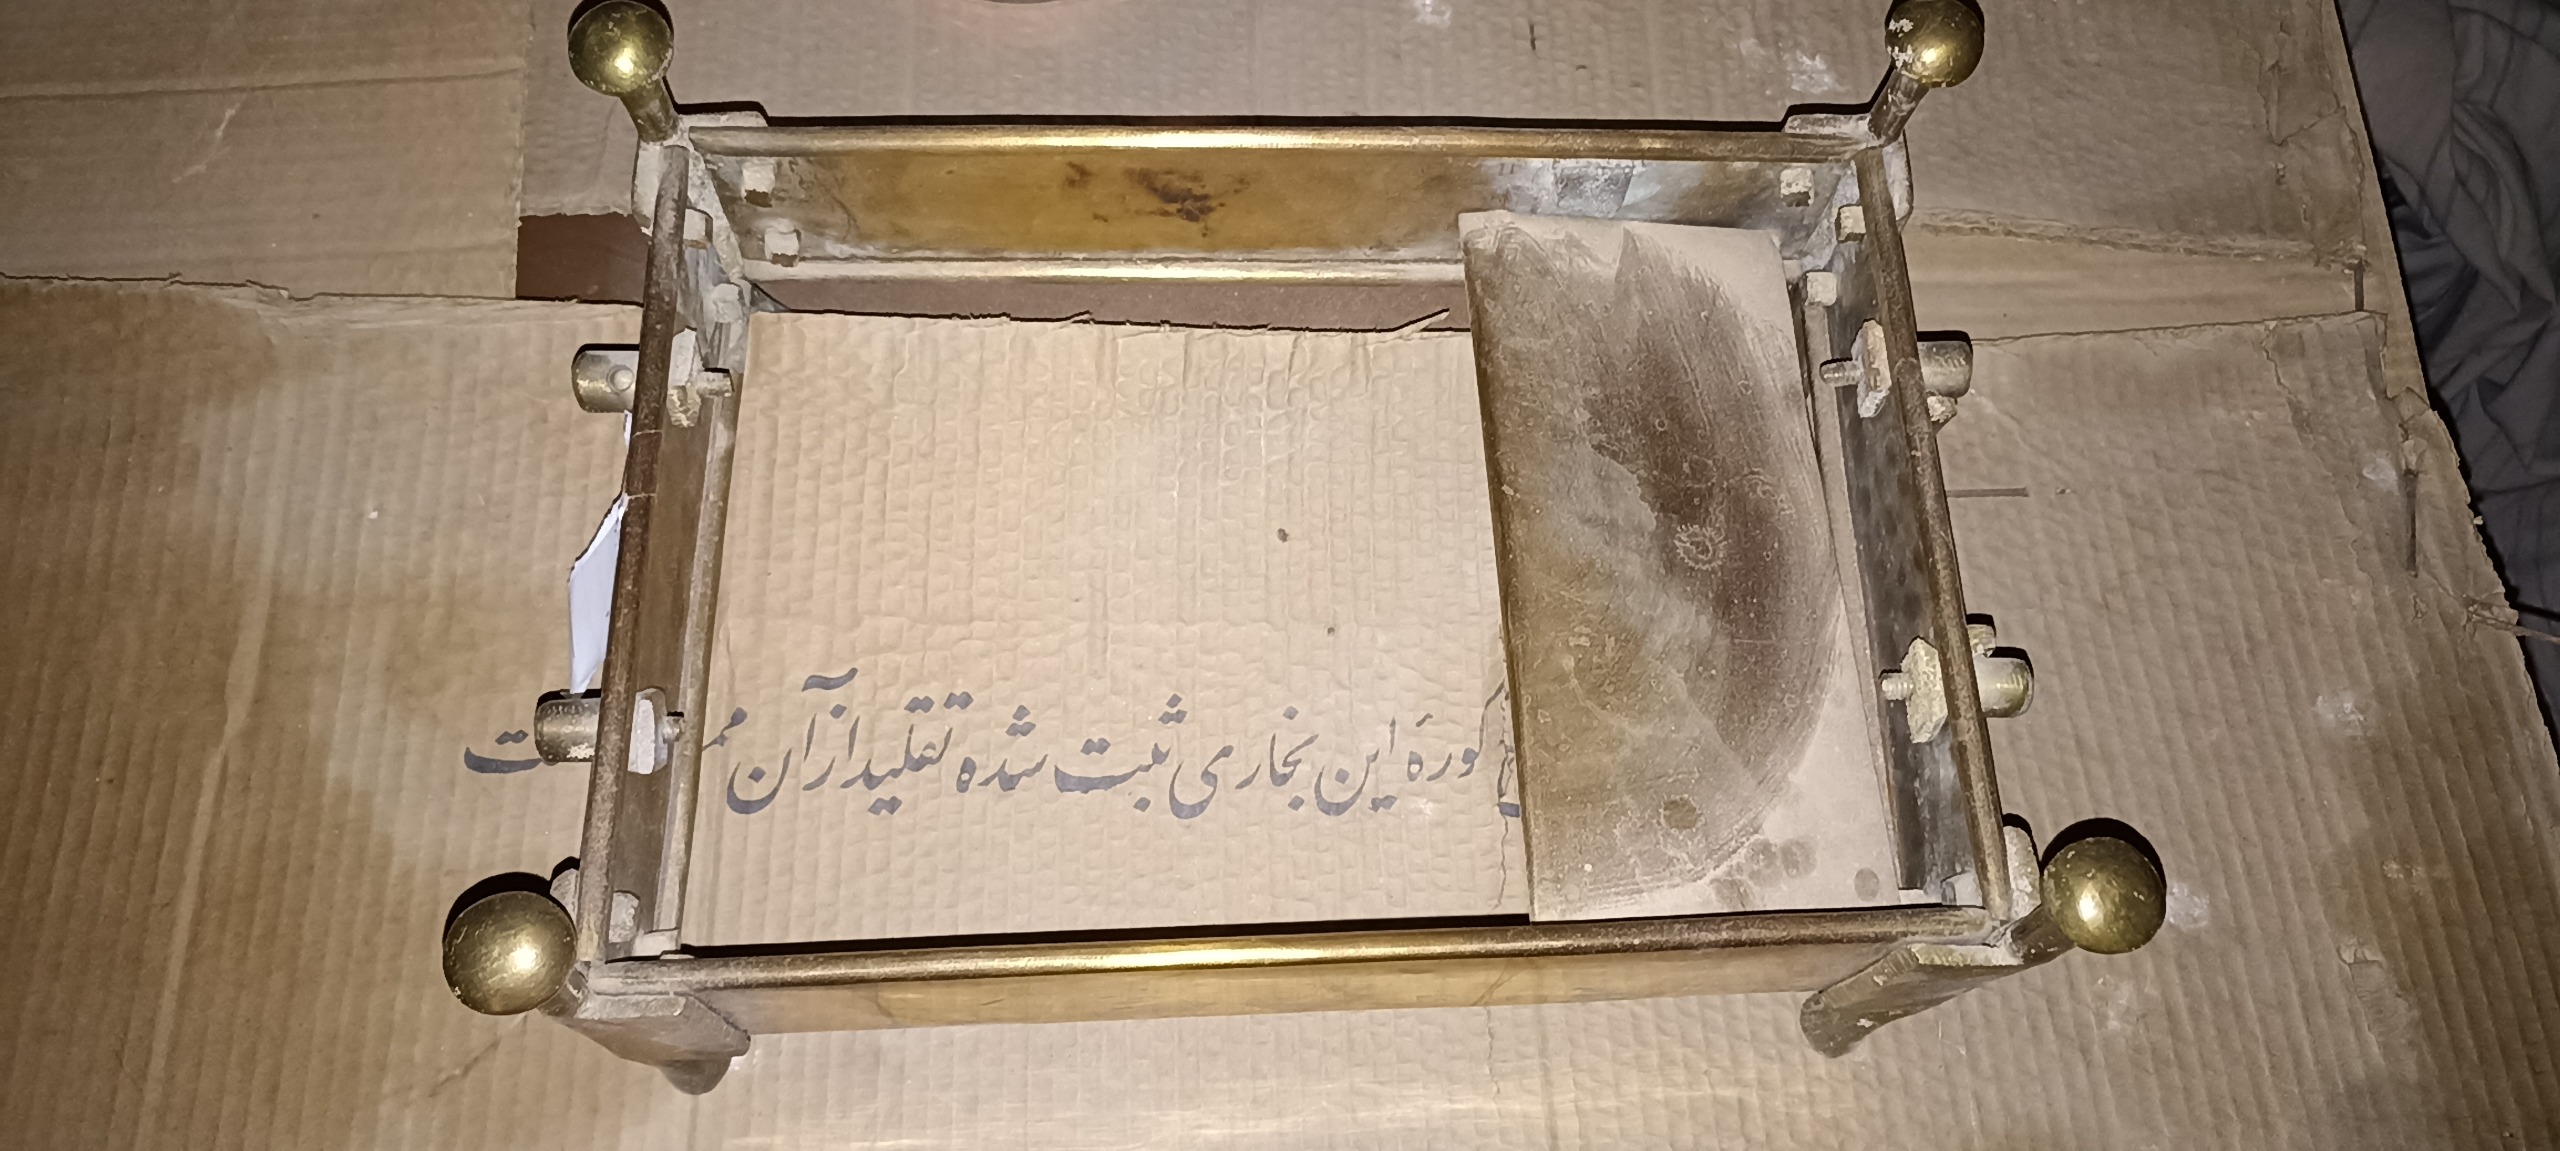 کورهٔ این بخاری ثبت شده تقلید از آن